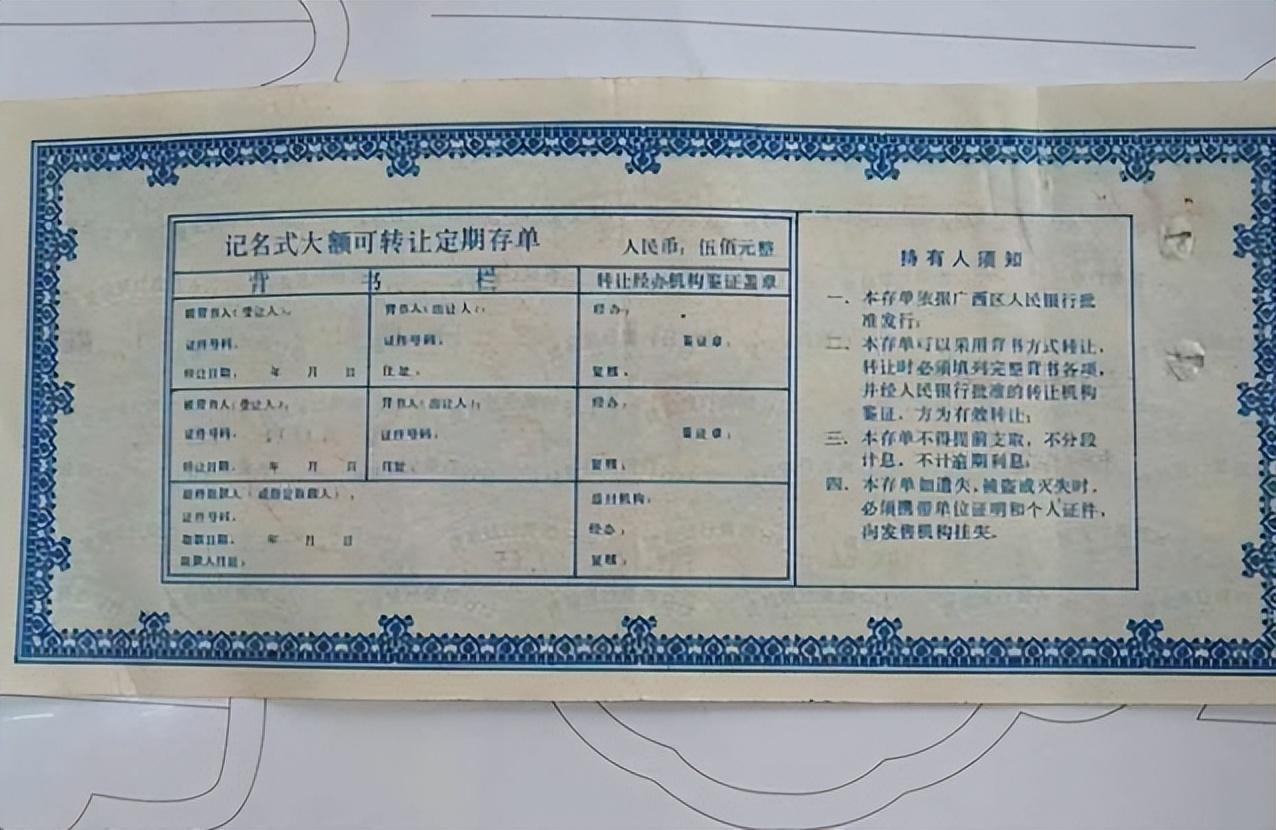 记名式大额可转让定期存单
人民币：伍佰元整
背 书 栏
转让经办机构鉴证盖章
被背书人（受让人）：
背书人（出让人）：
经办：
证件号码：
证件号码：
鉴证章：
转让日期： 年 月 日
住址：
复核：
被背书人（受让人）：
背书人（出让人）：
经办：
证件号码：
证件号码：
鉴证章：
转让日期： 年 月 日
住址：
复核：
最终取款人（或指定取款人）：
兑付机构：
证件号码：
经办：
取款日期： 年 月 日
取款人住址：
复核：
持有人须知
一、本存单依据广西区人民银行批
准发行；
二、本存单可以采用背书方式转让，
转让时必须填列完整背书各项，
并经人民银行批准的转让机构
鉴证，方为有效转让；
三、本存单不得提前支取，不分段
计息，不计逾期利息；
四、本存单如遗失、被盗或灭失时，
必须携带单位证明和个人证件，
向发售机构挂失。